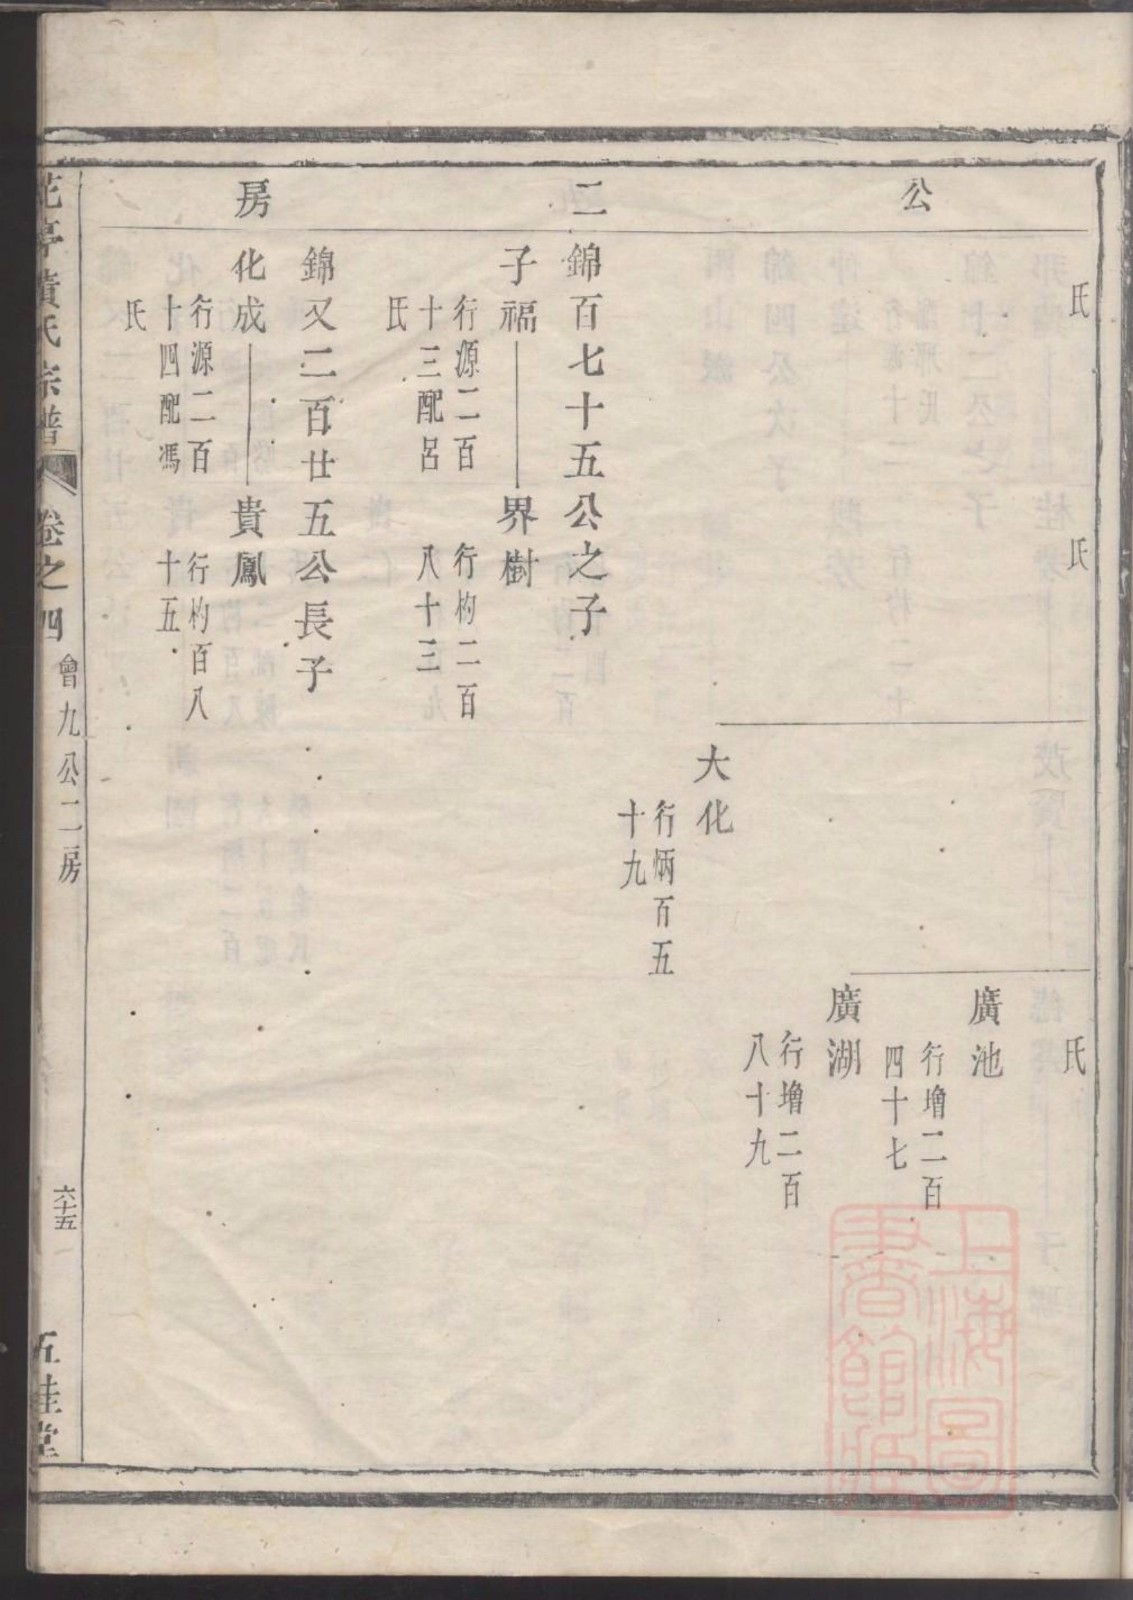 公
二
房
氏
氏
氏
廣池
行增二百
四十七
廣湖
行增二百
八十九
大化
行炳百五
十九
錦百七十五公之子
子福
行源二百
十三配呂
氏
界樹
行杓二百
八十三
錦又二百廿五公長子
化成
行源二百
十四配馮
氏
貴鳳
行杓百八
十五
花亭黃氏宗譜
卷之四
會九公二房
六十五
五桂堂
上海圖
書館藏